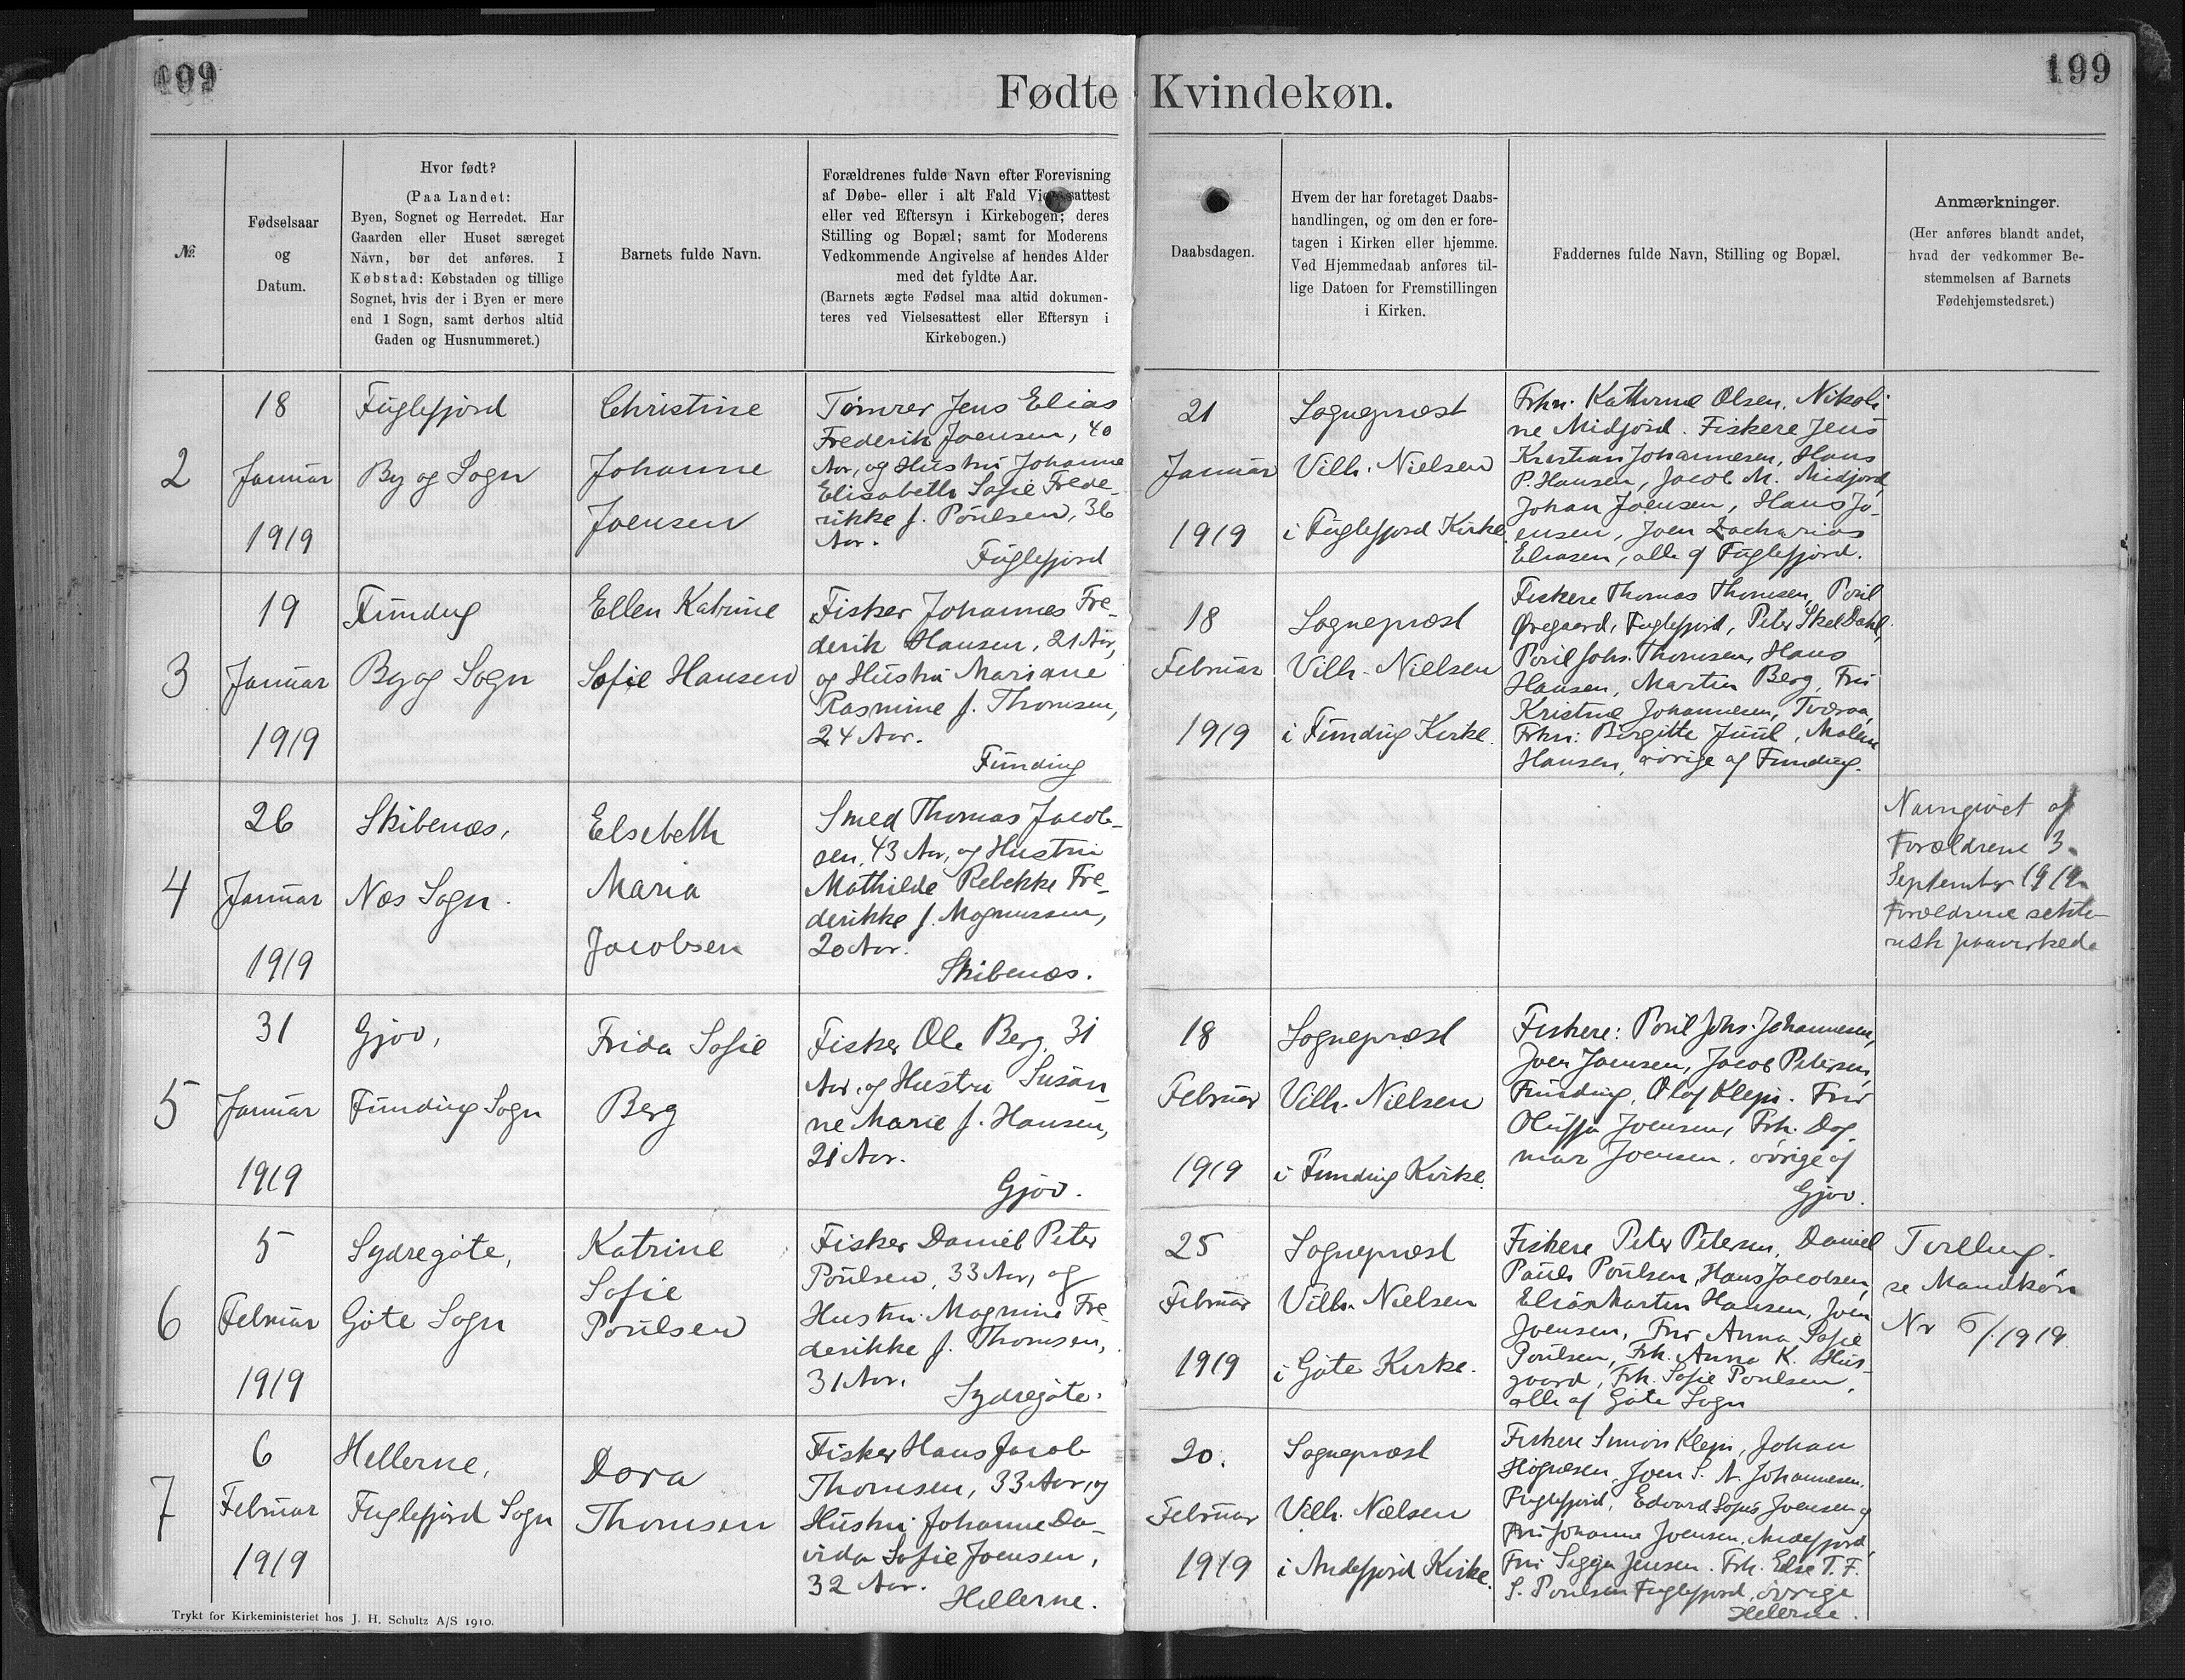 199
199
Fødte Kvindekøn.
№
Fødselsaar
og
Datum.
Hvor født?
(Paa Landet:
Byen, Sognet og Herredet. Har
Gaarden eller Huset særeget
Navn, bør det anføres. I
Købstad: Købstaden og tillige
Sognet, hvis der i Byen er mere
end 1 Sogn, samt derhos altid
Gaden og Husnummeret.)
Barnets fulde Navn.
Forældrenes fulde Navn efter Forevisning
af Døbe- eller i alt Fald Vielsesattest
eller ved Eftersyn i Kirkebogen; deres
Stilling og Bopæl; samt for Moderens
Vedkommende Angivelse af hendes Alder
med det fyldte Aar.
(Barnets ægte Fødsel maa altid dokumen-
teres ved Vielsesattest eller Eftersyn i
Kirkebogen.)
Daabsdagen.
Hvem der har foretaget Daabs-
handlingen, og om den er fore-
tagen i Kirken eller hjemme.
Ved Hjemmedaab anføres til-
lige Datoen for Fremstillingen
i Kirken.
Faddernes fulde Navn, Stilling og Bopæl.
Anmærkninger.
(Her anføres blandt andet,
hvad der vedkommer Be-
stemmelsen af Barnets
Fødehjemstedsret.)
2
18
Januar
1919
Fuglefjord
By og Sogn
Christine
Johanne
Joensen
Tømrer Jens Elias
Frederik Joensen, 40
Aar, og Hustru Johanne
Elisabeth Sofie Frede-
rikke f. Poulsen, 36
Aar.
Fuglefjord
21
Januar
1919
Sognepræst
Vilh. Nielsen
i Fuglefjord Kirke.
Frkn. Kathrine Olsen, Nikoli-
ne Midjord. Fiskere Jens
Kristian Johannesen, Hans
P. Hansen, Jacob M. Midjord,
Johan Joensen, Hans Jo-
ensen, Joen Zacharias
Eliasen, alle af Fuglefjord.
3
19
Januar
1919
Funding
By og Sogn
Ellen Katrine
Sofie Hansen
Fisker Johannes Fre-
derik Hansen, 21 Aar,
og Hustru Mariane
Rasmine f. Thomsen,
24 Aar.
Funding
18
Februar
1919
Sognepræst
Vilh. Nielsen
i Funding Kirke.
Fiskere Thomas Thomsen, Poul
Øregaard, Fuglefjord, Peter Skel Dahl,
Poul Johs. Thomsen, Hans
Hansen, Martin Berg, Fru
Kristine Johannesen, Tværaa,
Frkn: Birgitte Juul, Malene
Hansen, øvrige af Funding.
4
26
Januar
1919
Skibenæs,
Næs Sogn.
Elsebeth
Maria
Jacobsen
Smed Thomas Jacob-
sen, 43 Aar, og Hustru
Mathilde Rebekke Fre-
derikke f. Magnussen,
20 Aar.
Skibenæs.
Navngivet af
Forældrene 3.
September 1919.
Forældrene sekte-
risk paavirkede
5
31
Januar
1919
Gjov,
Funding Sogn
Frida Sofie
Berg
Fisker Ole Berg, 31
Aar, og Hustru Susan-
ne Marie f. Hansen,
21 Aar.
Gjov.
18
Februar
1919
Sognepræst
Vilh. Nielsen
i Funding Kirke.
Fiskere: Poul Johs. Johannesen,
Joen Joensen, Jacob Petersen,
Funding, Olaf Klein. Fru
Joensen, Frk. Dag-
mar Joensen, øvrige af
Gjov.
6
5
Februar
1919
Sydregøte,
Gøte Sogn
Katrine
Sofie
Poulsen
Fisker Daniel Peter
Poulsen, 33 Aar, og
Hustru Magnine Fre-
derikke f. Thomsen,
31 Aar.
Sydregøte.
25
Februar
1919
Sognepræst
Vilh. Nielsen
i Gøte Kirke.
Fiskere Peter Petersen, Daniel
Pauli Poulsen, Hans Jacobsen,
Elias Martin Hansen, Joen
Joensen, Fru Anna Sofie
Poulsen, Frk. Anna K. Hus-
gaard, Frk. Sofie Poulsen,
alle af Gøte Sogn
Tvilling.
se Mandkøn
Nr 6/1919.
7
6
Februar
1919
Hellerne,
Fuglefjord Sogn
Dora
Thomsen
Fisker Hans Jacob
Thomsen, 33 Aar, og
Hustru Johanne Da-
vida Sofie Joensen,
32 Aar.
Hellerne.
20.
Februar
1919
Sognepræst
Vilh. Nielsen
i Andefjord Kirke.
Fiskere Simon Klein, Johan
Høgnesen, Joen S. N. Johannesen,
Fuglefjord, Edvard Sofus Joensen og
Fru Johanne Joensen, Andefjord,
Fru Sigga Jensen. Frk. Else T. F.
S. Poulsen Fuglefjord, øvrige
Hellerne.
Trykt for Kirkeministeriet hos J. H. Schultz A/S 1910.